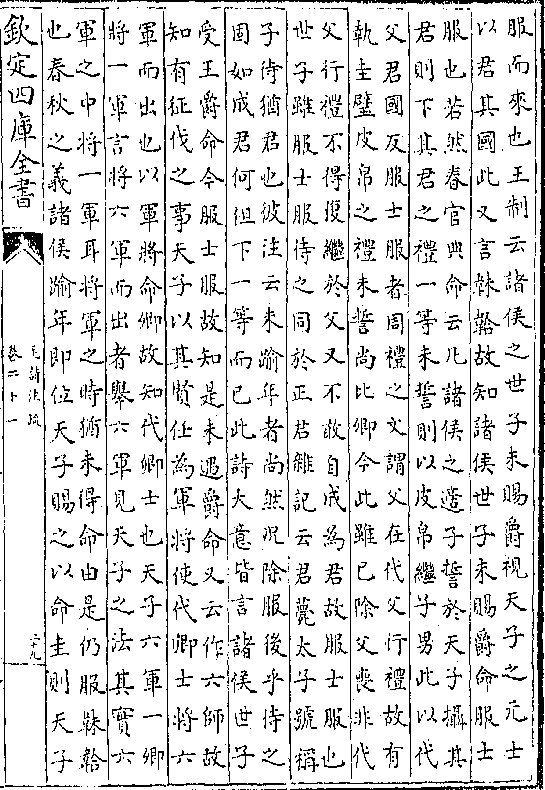 服而來也王制云諸侯之世子未賜爵視天子之元士
以君其國此又言韎韐故知諸侯世子未賜爵命服士
服也若然春官典命云凡諸侯之適子誓於天子攝其
君則下其君之禮一等未誓則以皮帛繼子男此以代
父君國反服士服者周禮之文謂父在代父行禮故有
執圭璧皮帛之禮未誓尚比卿今此雖已除父喪非代
父行禮不得復繼於父又不敢自成為君故服士服也
世子雖服士服待之同於正君雜記云君薨太子號稱
子待猶君也彼注云未踰年者尚然况除服後乎待之
固如成君何但下一等而已此詩大意皆言諸侯世子
受王爵命今服士服故知是未遇爵命又云作六師故
知有征伐之事天子以其賢任為軍將使代卿士將六
軍而出也以軍將命卿故知代卿士也天子六軍一卿
將一軍言將六軍而出者舉六軍見天子之法其實六
軍之中將一軍耳將軍之時猶未得命由是仍服韎韐
也春秋之義諸侯踰年即位天子賜之以命圭則天子
欽定四庫全書
毛詩注疏
卷二十一
二十九